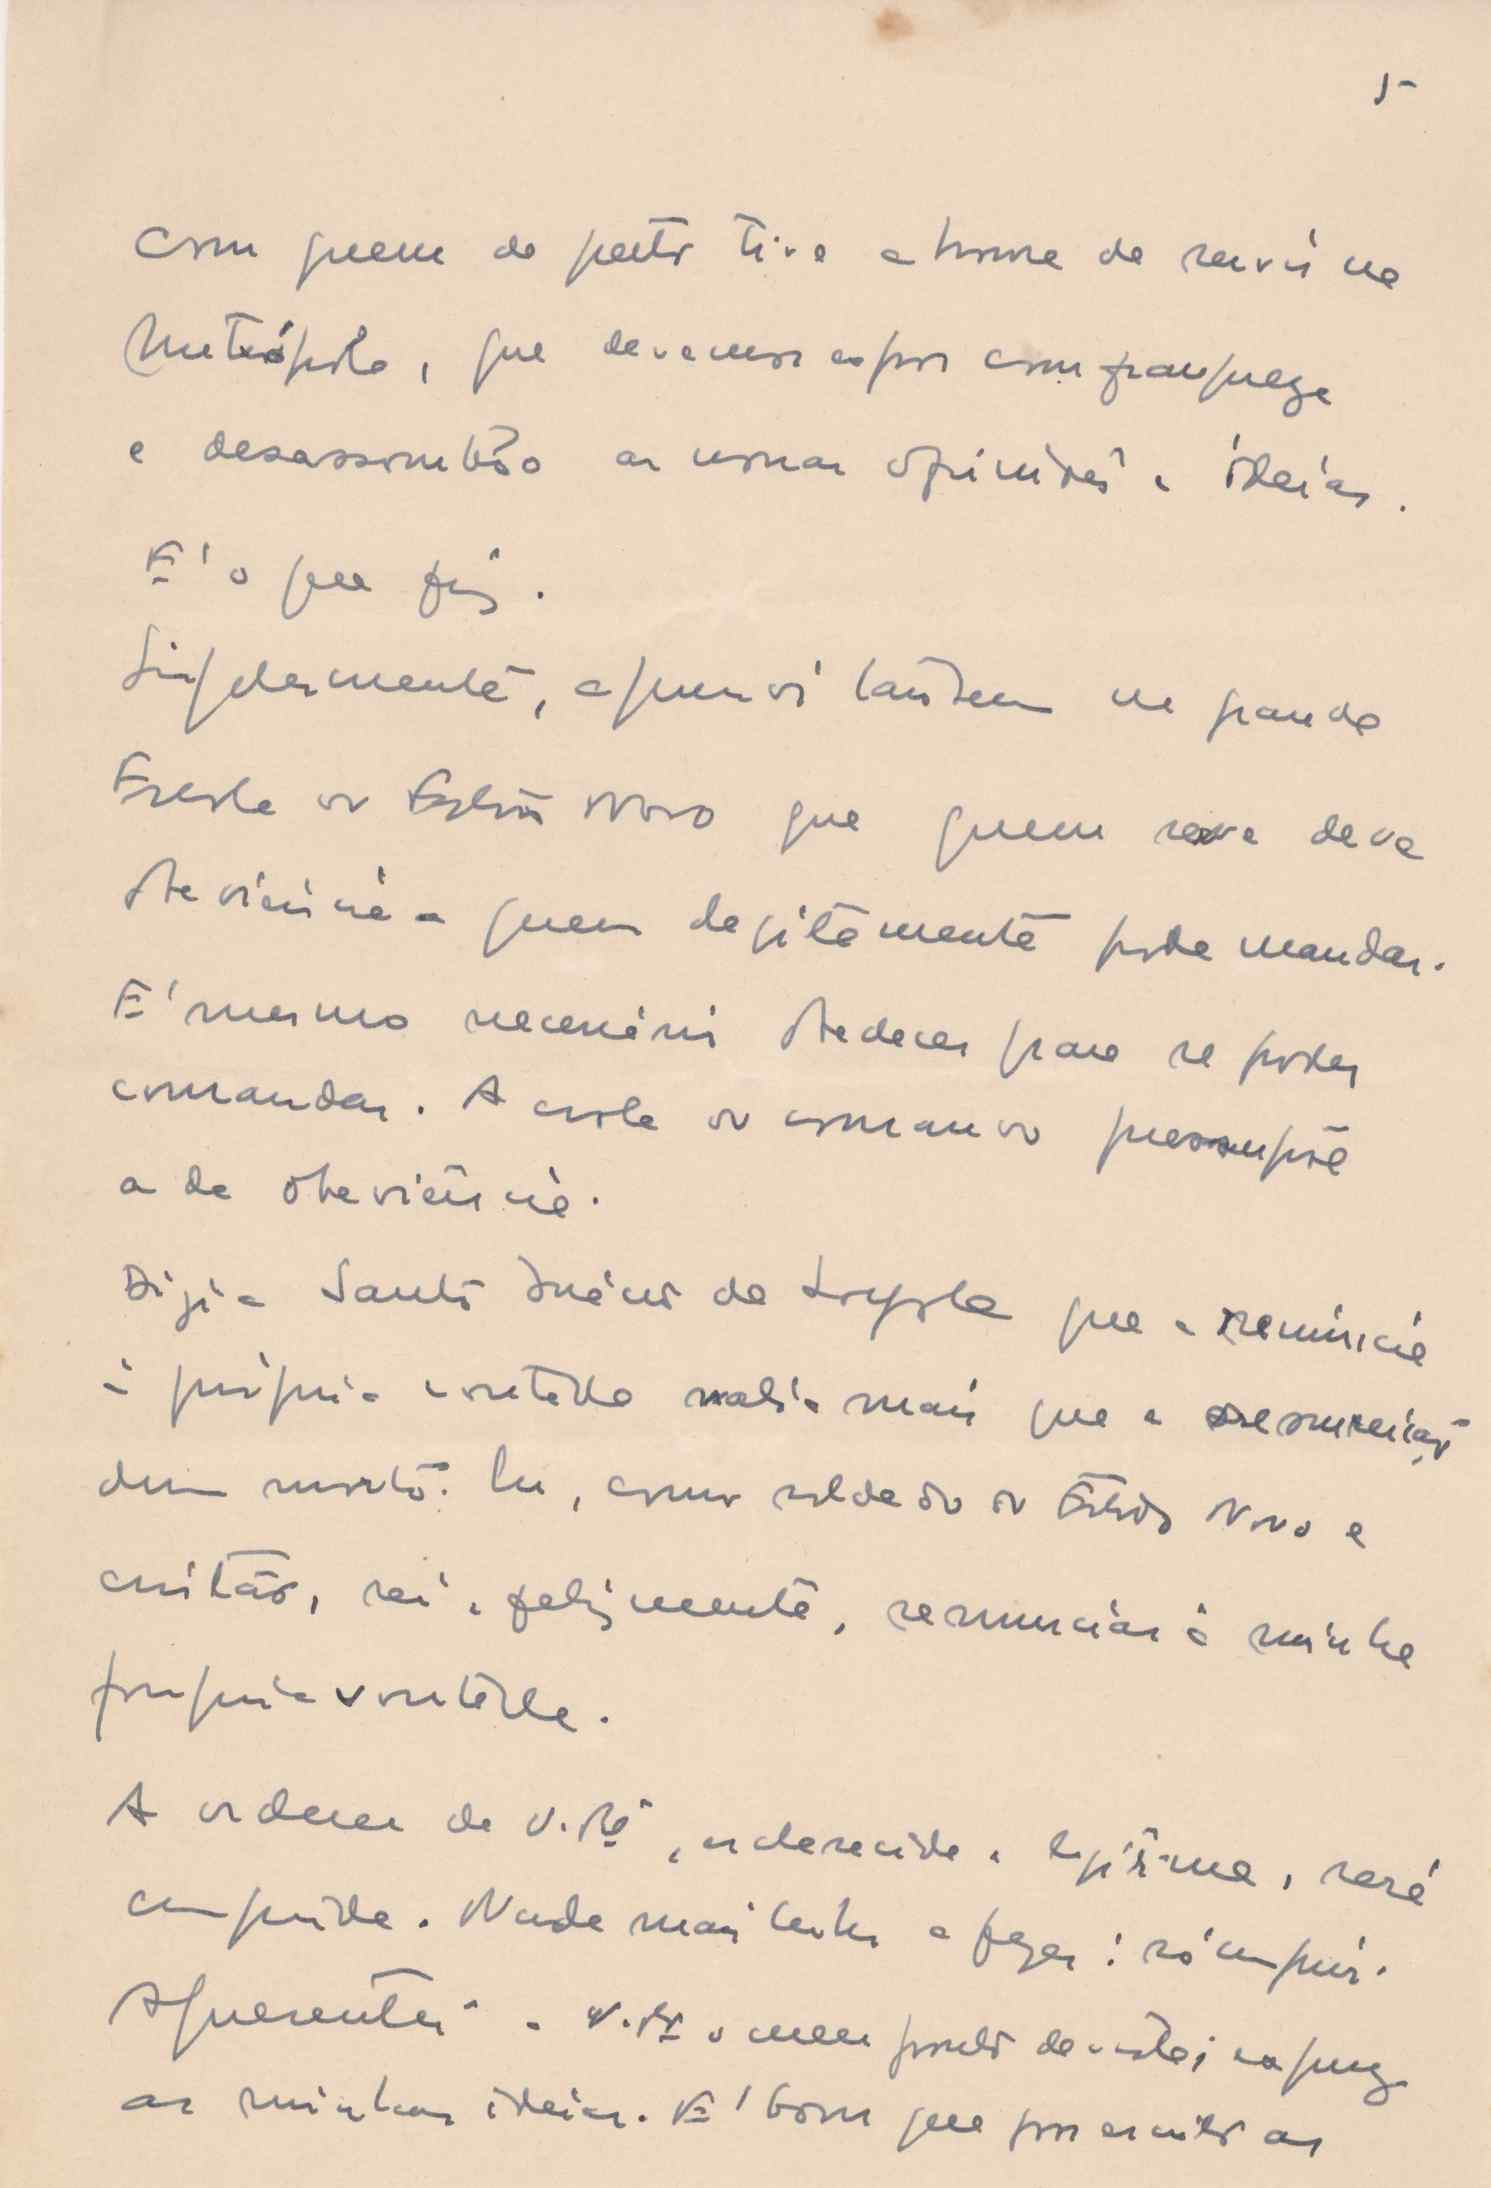 5
com quem de perto tive a honra de servir na
Metrópole, que devemos expor com franqueza
e desassombro as nossas opiniões e ideias.
E' o que fiz.
Simplesmente, aprendi também na grande
Escola do Estado Novo que quem serve deve
obediência a quem legitimamente pode mandar.
E' mesmo necessário obedecer para se poder
comandar. A escola do comando pressupõe
a da obediência.
Dizia Santo Inácio de Loyola que a renúncia
à própria vontade valia mais que a ressurreição
dum morto. Eu, como soldado do Estado Novo e
cristão, sei, felizmente, renunciar à minha
própria vontade.
A ordem de V. Exª, esclarecida e legítima, será
cumprida. Nada mais tenho a fazer: só cumprir.
Apresentei a V. Exª o meu ponto de vista; expuz
as minhas ideias. E' bom que por escrito as